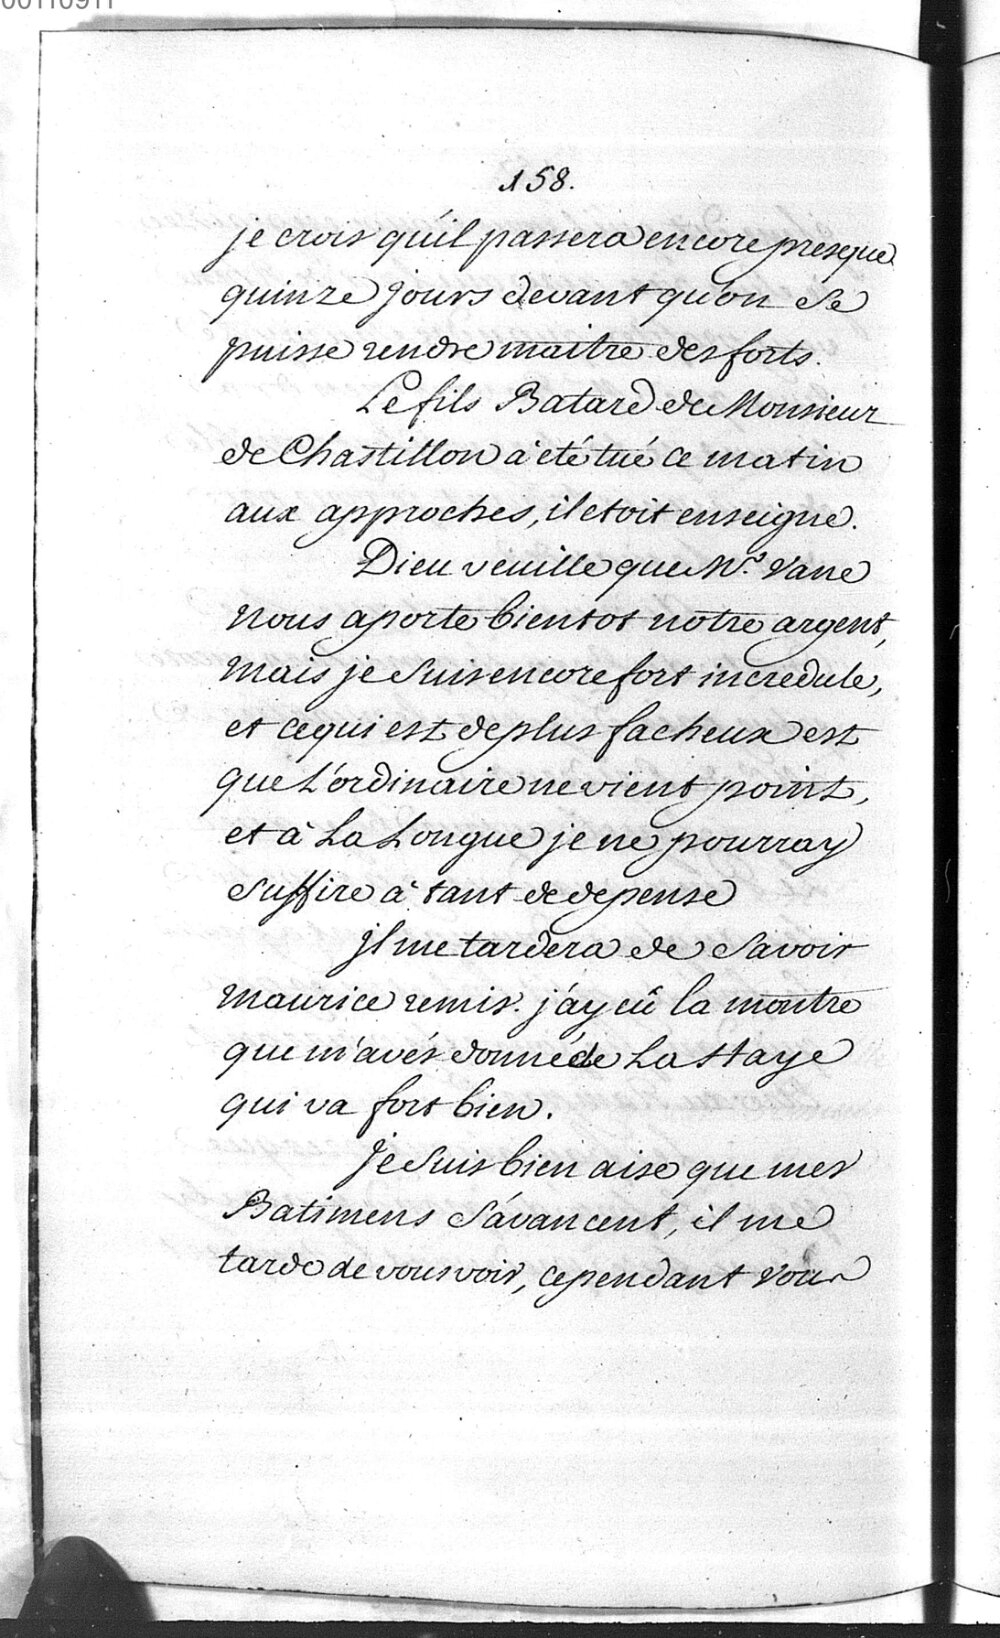 00110911
158.
je crois qu'il passera encore presque
quinze jours devant qu'on se
puisse rendre maitre des forts.
Le fils Batard de Monsieur
de Chastillon à été tué ce matin
aux approches, il etoit enseigne.
Dieu veuille que Mr. Vane
nous aporte bientot notre argent,
mais je suis encore fort incredule,
et ce qui est de plus facheux est
que L'ordinaire ne vient point,
et à La Longue je ne pourray
suffire à tant de depense
jl me tardera de savoir
maurice remis. j'ay eû la montre
que m'avés donné de La Haye
qui va fort bien.
Je suis bien aise que mes
Batimens s'avancent, il me
tarde de vous voir, cependant vous